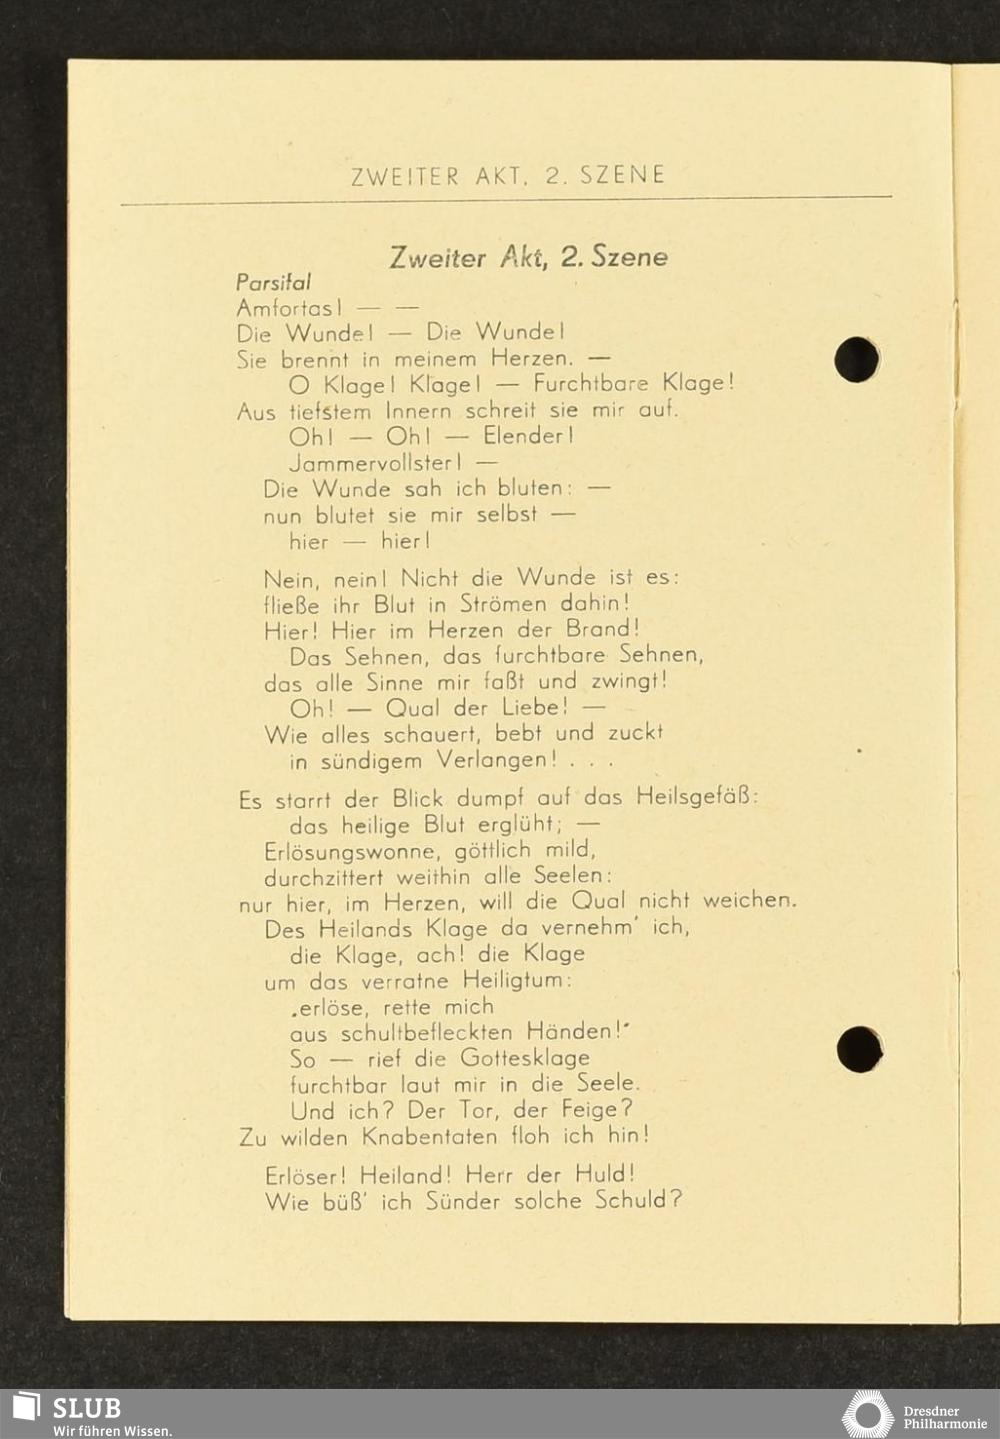 ZWEITER AKT, 2. SZENE
Zweiter Akt, 2. Szene
Parsifal
Amfortas! — —
Die Wunde! — Die Wunde!
Sie brennt in meinem Herzen. —
O Klage! Klage! — Furchtbare Klage!
Aus tiefstem Innern schreit sie mir auf.
Oh! — Oh! — Elender!
Jammervollster! —
Die Wunde sah ich bluten: —
nun blutet sie mir selbst —
hier — hier!
Nein, nein! Nicht die Wunde ist es:
fließe ihr Blut in Strömen dahin!
Hier! Hier im Herzen der Brand!
Das Sehnen, das furchtbare Sehnen,
das alle Sinne mir faßt und zwingt!
Oh! — Qual der Liebe! —
Wie alles schauert, bebt und zuckt
in sündigem Verlangen! . . .
Es starrt der Blick dumpf auf das Heilsgefäß:
das heilige Blut erglüht; —
Erlösungswonne, göttlich mild,
durchzittert weithin alle Seelen:
nur hier, im Herzen, will die Qual nicht weichen.
Des Heilands Klage da vernehm' ich,
die Klage, ach! die Klage
um das verratne Heiligtum:
„erlöse, rette mich
aus schultbefleckten Händen!"
So — rief die Gottesklage
furchtbar laut mir in die Seele.
Und ich? Der Tor, der Feige?
Zu wilden Knabentaten floh ich hin!
Erlöser! Heiland! Herr der Huld!
Wie büß' ich Sünder solche Schuld?
SLUB
Wir führen Wissen.
Dresdner
Philharmonie